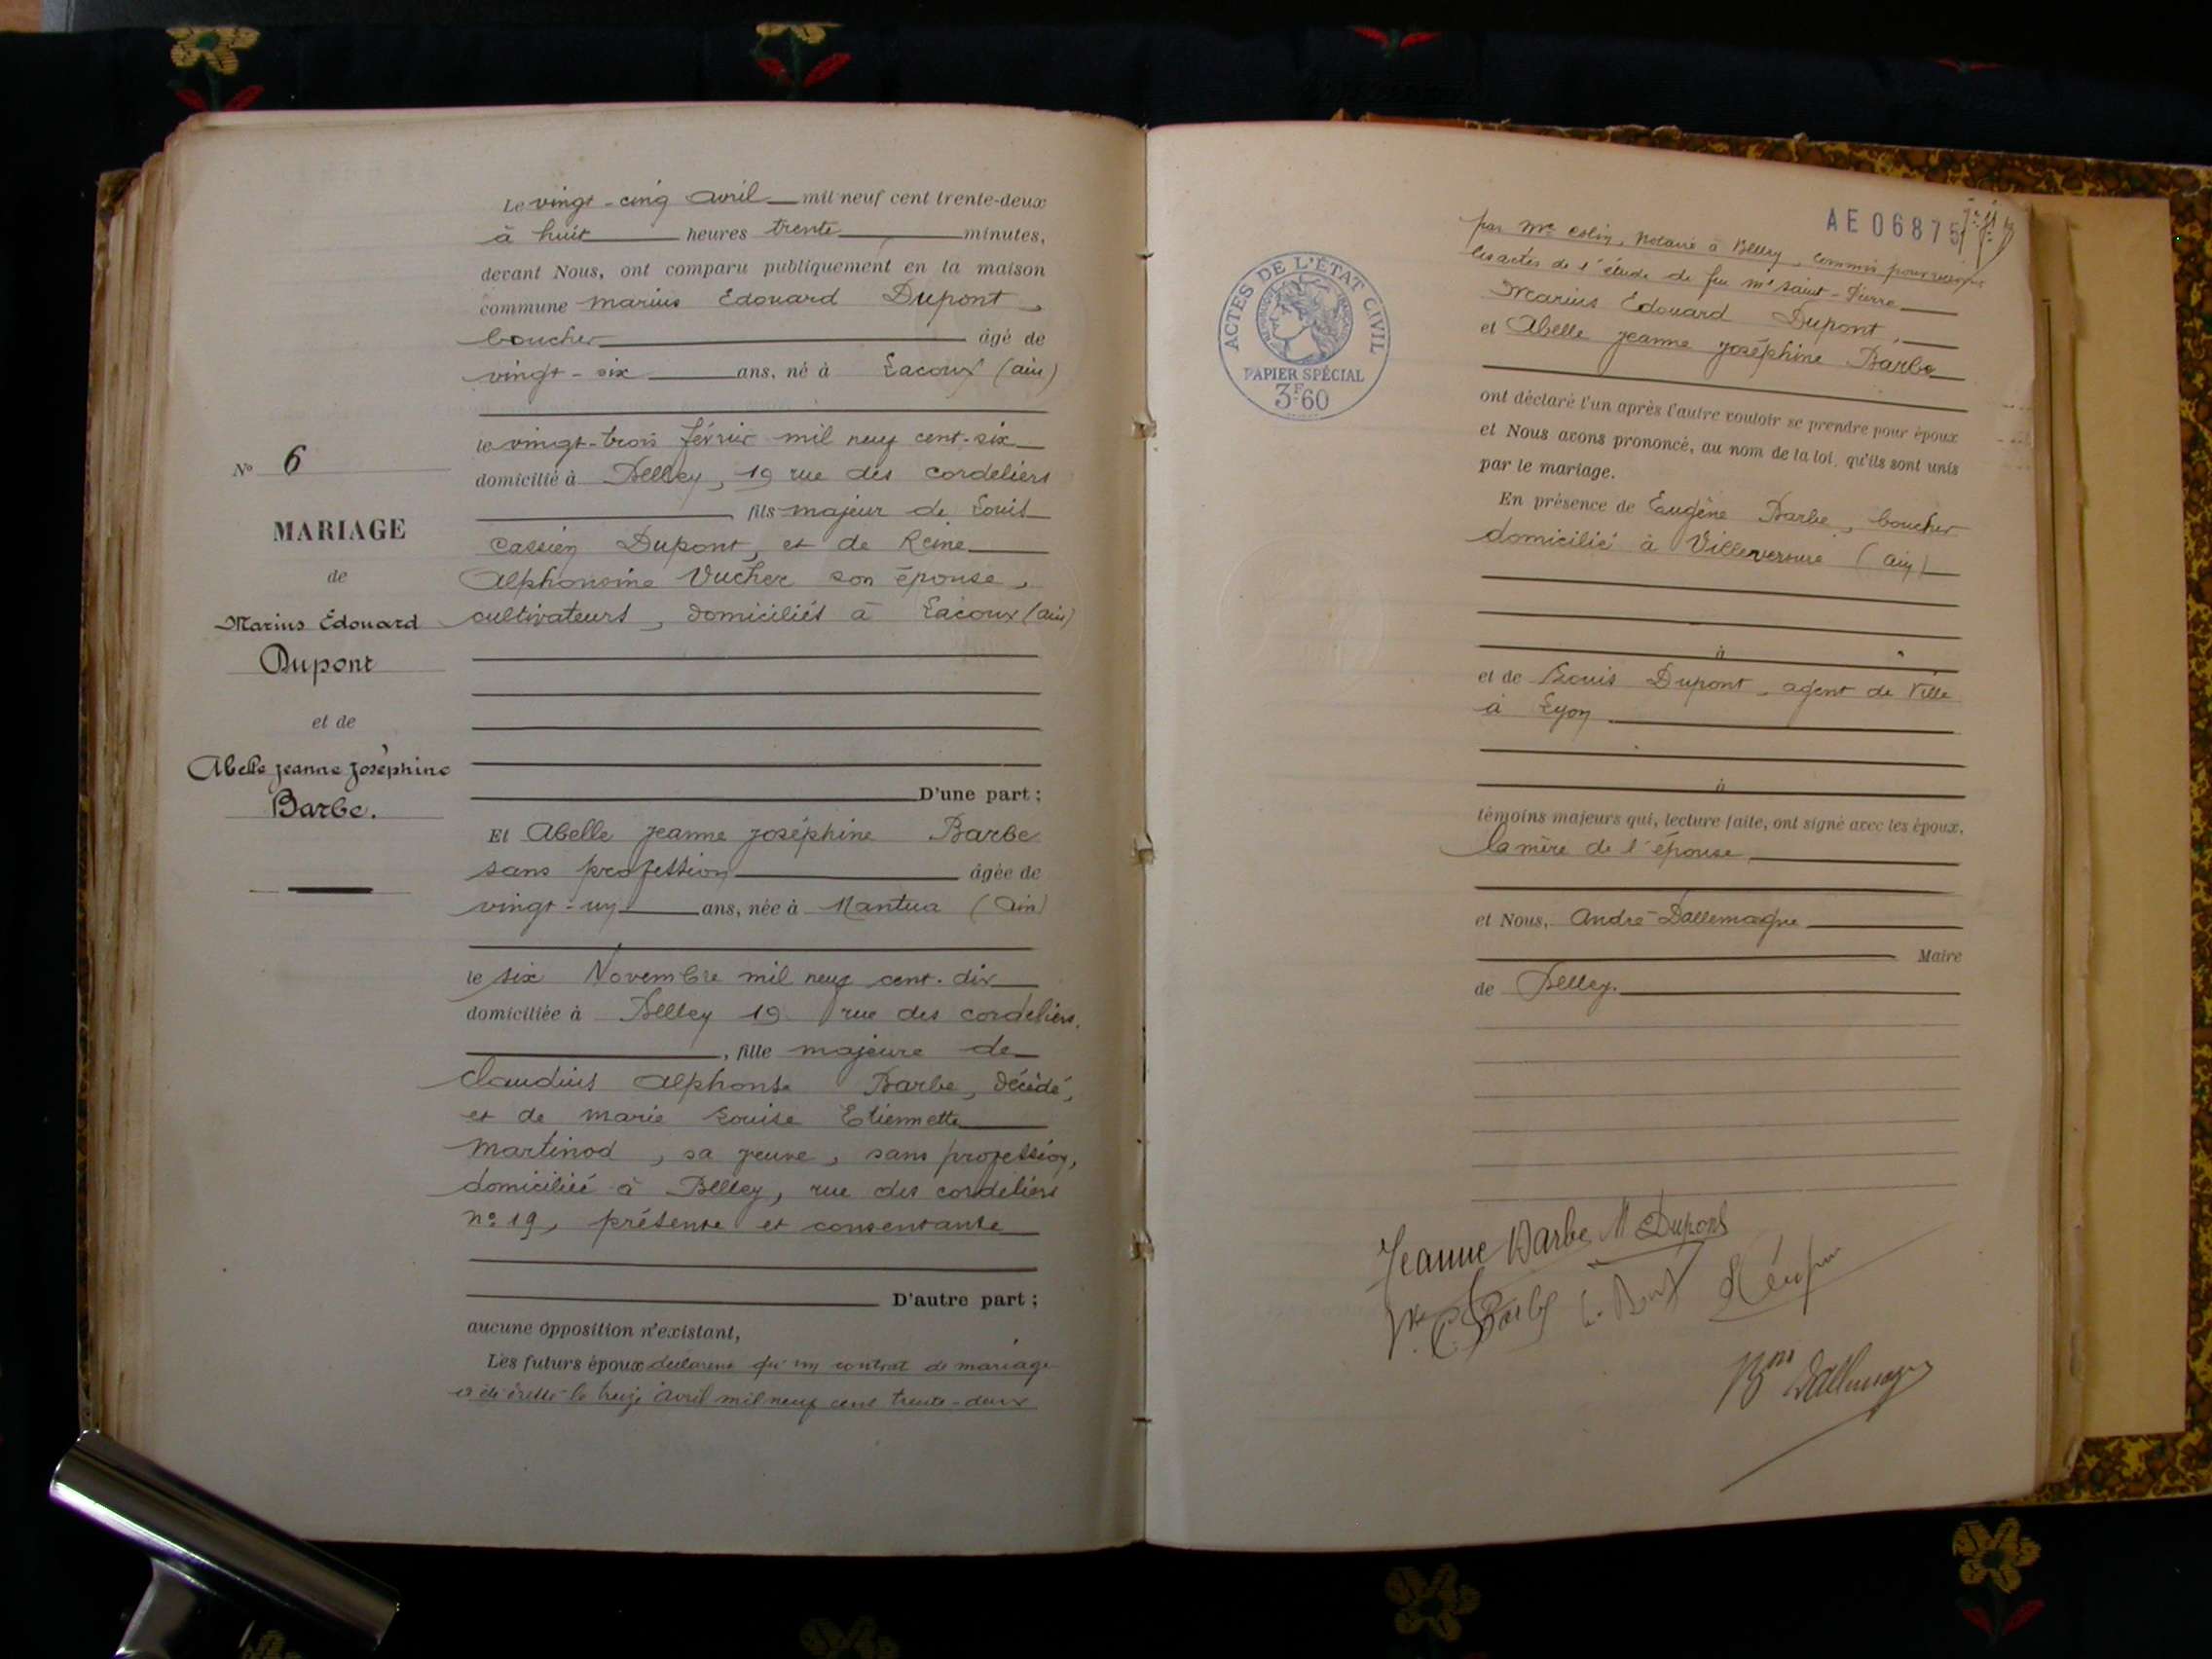 Le vingt-cinq avril mil neuf cent trente-deux
à huit heures trente minutes,
devant Nous, ont comparu publiquement en la maison
commune Marius Edouard Dupont,
boucher âgé de
vingt-six ans, né à Lacoux (Ain)
le vingt-trois février mil neuf cent-six
domicilié à Belley, 19 rue des cordeliers
fils majeur de Louis
Cassien Dupont, et de Reine
Alphonsine Vucher son épouse,
cultivateurs, domiciliés à Lacoux (Ain)
D'une part ;
N° 6
MARIAGE
de
Marius Édouard
Dupont
et de
Abelle Jeanne Joséphine
Barbe.
Et Abelle Jeanne Joséphine Barbe
sans profession âgée de
vingt-un ans, née à Nantua (Ain)
le six Novembre mil neuf cent-dix
domiciliée à Belley 19 rue des cordeliers,
, fille majeure de
Claudius Alphonse Barbe, décédé,
et de Marie Louise Etiennette
Martinod, sa veuve, sans profession,
domiciliée à Belley, rue des cordeliers
n° 19, présente et consentante
D'autre part ;
aucune opposition n'existant,
Les futurs époux déclarent qu'un contrat de mariage
a été dressé le treize avril mil neuf cent trente-deux
AE 06875
par Me Colin, Notaire à Belley, commis pour
les actes de l'étude de feu Me Saint-Pierre
Marius Edouard Dupont,
et Abelle Jeanne Joséphine Barbe
ACTES DE L'ÉTAT CIVIL
PAPIER SPÉCIAL
3F60
ont déclaré l'un après l'autre vouloir se prendre pour époux
et Nous avons prononcé, au nom de la loi, qu'ils sont unis
par le mariage.
En présence de Eugène Barbe, boucher
domicilié à Villeversure (Ain)
à
et de Louis Dupont, agent de Ville
à Lyon
à
témoins majeurs qui, lecture faite, ont signé avec les époux,
la mère de l'épouse
et Nous, André Dallemagne
Maire
de Belley.
Jeanne Barbe M Dupont
Vve C. Barbe
Bon Dallemagne